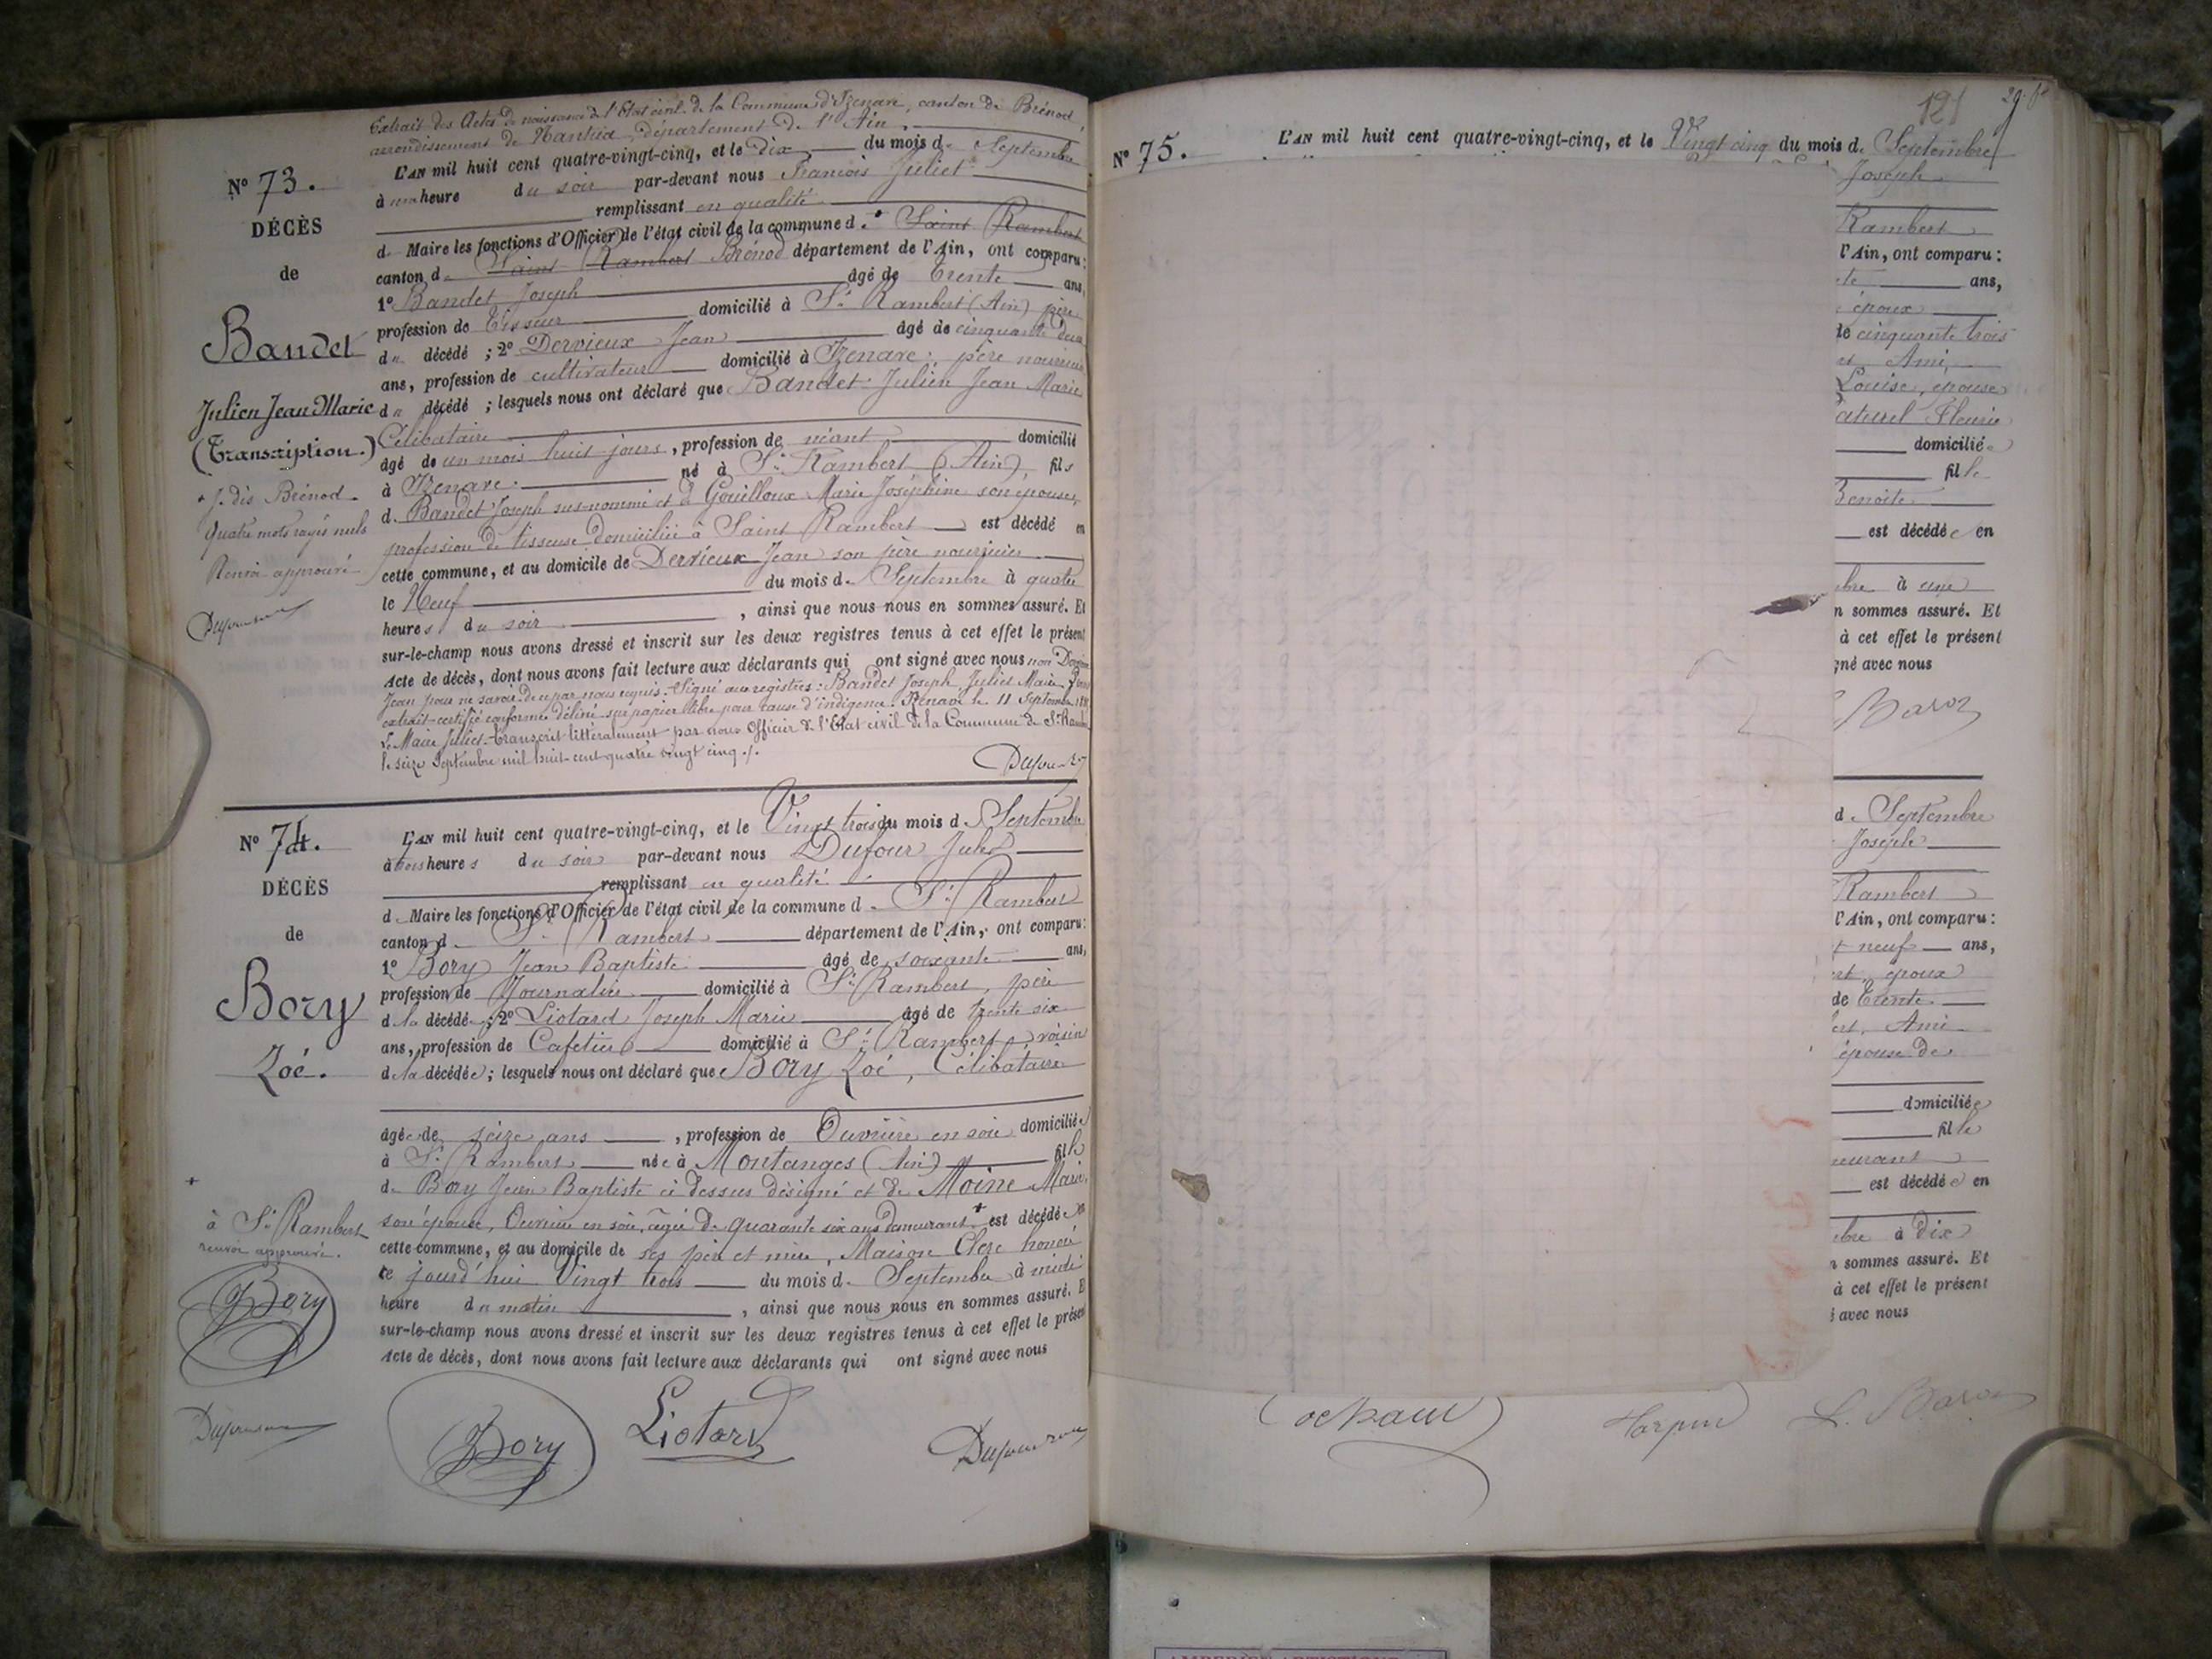 Extrait des Actes de naissance de l'Etat civil de la Commune d'Izenave, canton de Brénod,
arrondissement de Nantua, département de l'Ain.
N° 73.
DÉCÈS
de
Bandet
Julien Jean Marie
(Transcription.)
Brénod
quatre mots rayés nuls
Renvoi approuvé
L'AN mil huit cent quatre-vingt-cinq, et le dix du mois d. Septembre
à une heure du soir par-devant nous François Juliet
remplissant en qualité
d. Maire les fonctions d'Officier de l'état civil de la commune d. Saint Rambert
canton d. Saint Rambert Brénod département de l'Ain, ont comparu:
1° Bandet Joseph âgé de trente ans,
profession de Tisseur domicilié à St Rambert (Ain) père
du décédé ; 2° Dervieux Jean âgé de cinquante deux
ans, profession de cultivateur domicilié à Izenave, père nourricier
du décédé ; lesquels nous ont déclaré que Bandet Julien Jean Marie
Célibataire
âgé de un mois huit jours, profession de néant domicilié
à Izenave né à St Rambert (Ain) fils
d. Bandet Joseph sus-nommé et de Gouilloux Marie Joséphine son épouse,
profession de tisseuse domiciliée à Saint Rambert est décédé en
cette commune, et au domicile de Dervieux Jean son père nourricier
le Neuf du mois d. Septembre à quatre
heures du soir, ainsi que nous nous en sommes assuré. Et
sur-le-champ nous avons dressé et inscrit sur les deux registres tenus à cet effet le présent
Acte de décès, dont nous avons fait lecture aux déclarants qui ont signé avec nous non Dervieux
Jean pour ne savoir de ce par nous requis. Signé aux registres : Bandet Joseph, Juliet Maire. Pour
extrait certifié conforme délivré sur papier libre pour cause d'indigence. Izenave le 11 Septembre
Le Maire Juliet. Transcrit littéralement par nous Officier de l'Etat civil de la Commune de St Rambert
le seize Septembre mil huit cent quatre vingt cinq ./.
N° 74.
DÉCÈS
de
Bory
Zoé.
+
à St Rambert
renvoi approuvé.
Bory
L'AN mil huit cent quatre-vingt-cinq, et le Vingt trois du mois d. Septembre
à trois heures du soir par-devant nous Dufour Jules
remplissant en qualité
d. Maire les fonctions d'Officier de l'état civil de la commune d. St Rambert
canton d. St Rambert département de l'Ain, ont comparu:
1° Bory Jean Baptiste âgé de soixante ans,
profession de Journalier domicilié à St Rambert, père
d la décédée ; 2° Liotard Joseph Marie âgé de trente six
ans, profession de Cafetier domicilié à St Rambert voisin
d la décédée ; lesquels nous ont déclaré que Bory Zoé, Célibataire
âgée de seize ans, profession de Ouvrière en soie domiciliée
à St Rambert née à Montanges (Ain) fille
d. Bory Jean Baptiste ci dessus désigné et de Moine Marie,
son épouse, Ouvrière en soie, âgée de quarante six ans demeurant + est décédée en
cette commune, et au domicile de ses père et mère, Maison Clerc honoré
ce jourd'hui Vingt trois du mois d. Septembre à midi
heure du matin, ainsi que nous nous en sommes assuré. Et
sur-le-champ nous avons dressé et inscrit sur les deux registres tenus à cet effet le présent
Acte de décès, dont nous avons fait lecture aux déclarants qui ont signé avec nous
Bory
Liotard
121
N° 75.
L'AN mil huit cent quatre-vingt-cinq, et le Vingt cinq du mois d. Septembre
Joseph
Rambert
l'Ain, ont comparu :
ans,
époux
de cinquante trois
Ami,
Louise, épouse
Fleurie
domiciliée
fille
Benoite
est décédée en
à une
n sommes assuré. Et
à cet effet le présent
gné avec nous
Baron
d. Septembre
Joseph
Rambert
l'Ain, ont comparu :
neuf ans,
époux
de Trente
Ami
épouse de
domiciliée
fille
est décédée en
à Dix
n sommes assuré. Et
à cet effet le présent
é avec nous
Cochaud
Harpin
L. Baron